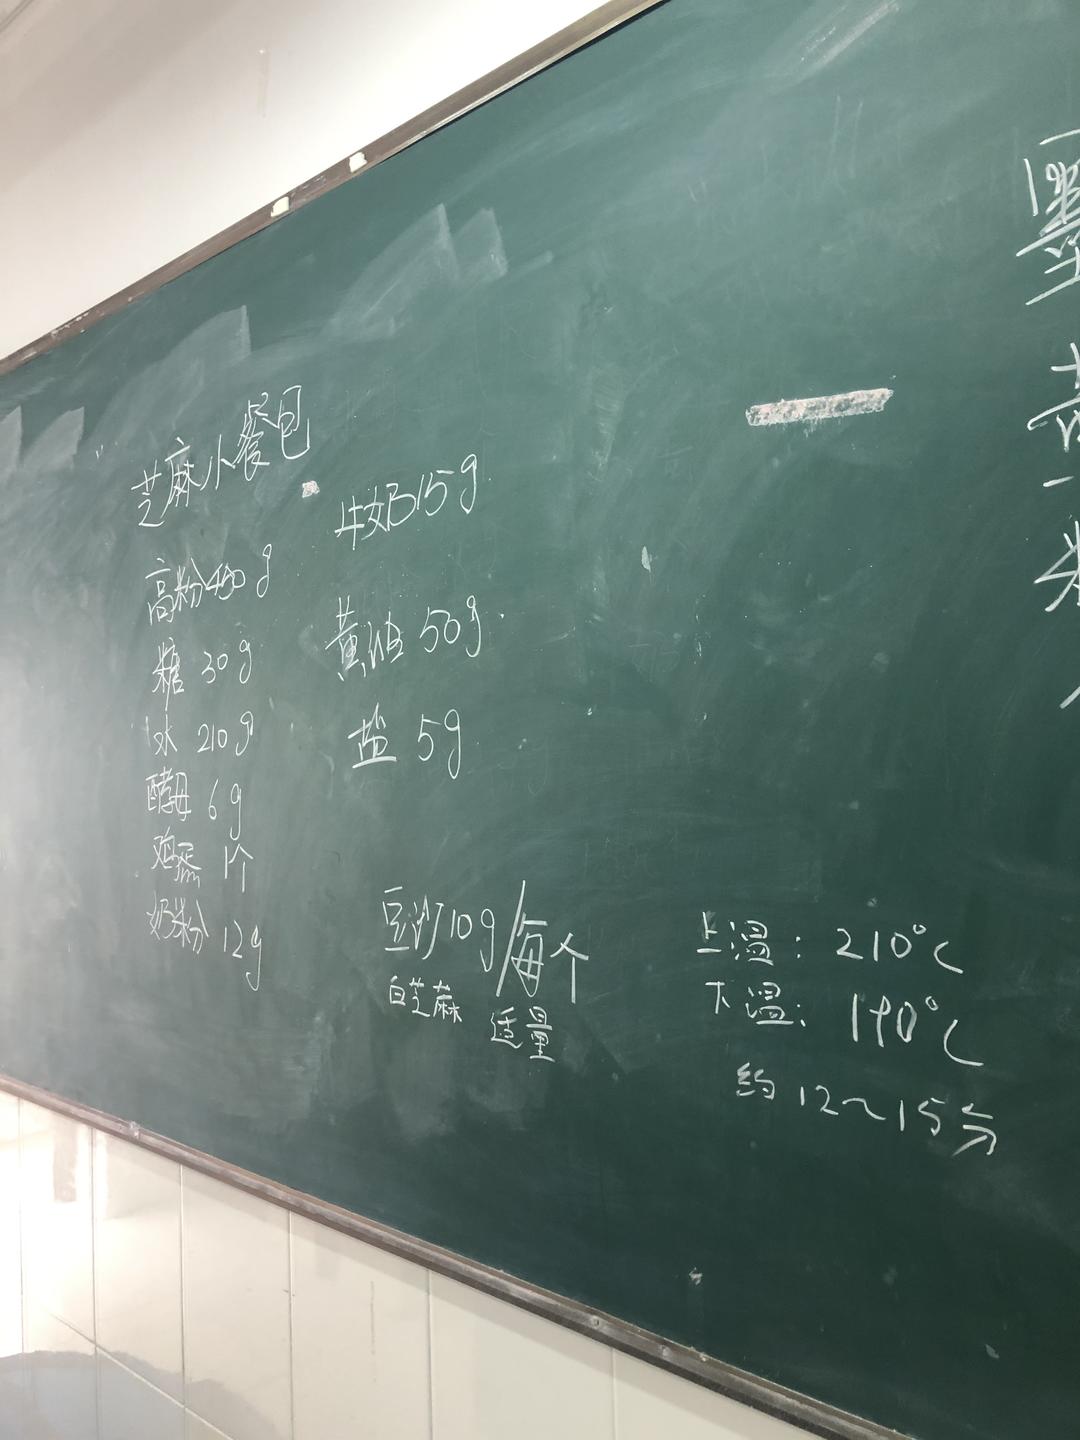 芝麻小餐包
高粉450g
糖 30g
冰 210g
酵母 6g
鸡蛋 1个
奶粉 12g
牛奶15g
黄油 50g
盐 5g
豆沙10g/每个
白芝麻 适量
上温: 210°C
下温: 190°C
约12~15分
墨